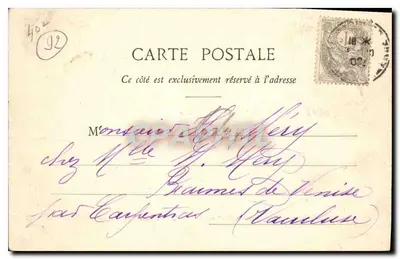 402
92
CARTE POSTALE
Ce côté est exclusivement réservé à l'adresse
Monsieur Méry
chez Mlle M. May
Baumes de Venise
par Carpentras (Vaucluse)